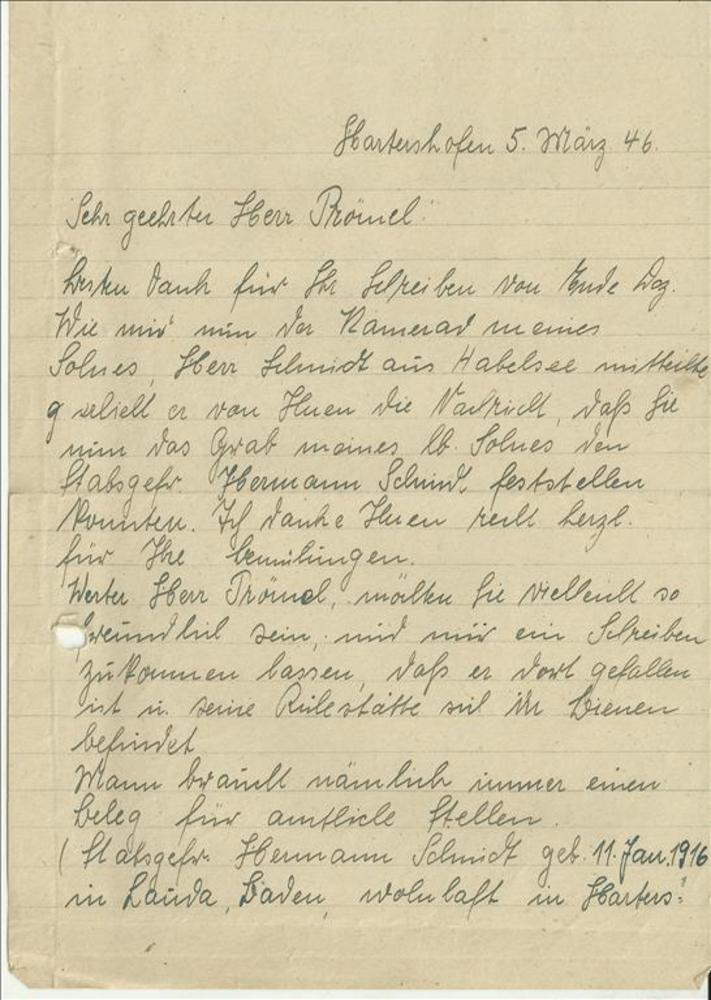 Hartershofen 5. März 46.
Sehr geehrter Herr Prömel!
besten Dank für Ihr Schreiben von Ende Dez.
Wie mir nun der Kamerad meines
Sohnes, Herr Schmidt aus Habelsee mitteilte
erhielt er von Ihnen die Nachricht, daß Sie
nun das Grab meines lb. Sohnes den
Stabsgefr. Hermann Schmidt, feststellen
konnten. Ich danke Ihnen recht herzl.
für Ihre bemühungen.
Werter Herr Prömel, möchten Sie vielleicht so
freundlich sein, und mir ein Schreiben
zukommen lassen, daß er dort gefallen
ist u. seine Ruhestätte sich in Bienen
befindet
Mann braucht nämlich immer einen
beleg für amtliche Stellen.
(Stabsgefr. Hermann Schmidt geb. 11. Jan. 1916
in Lauda, Baden, wohnhaft in Harters: